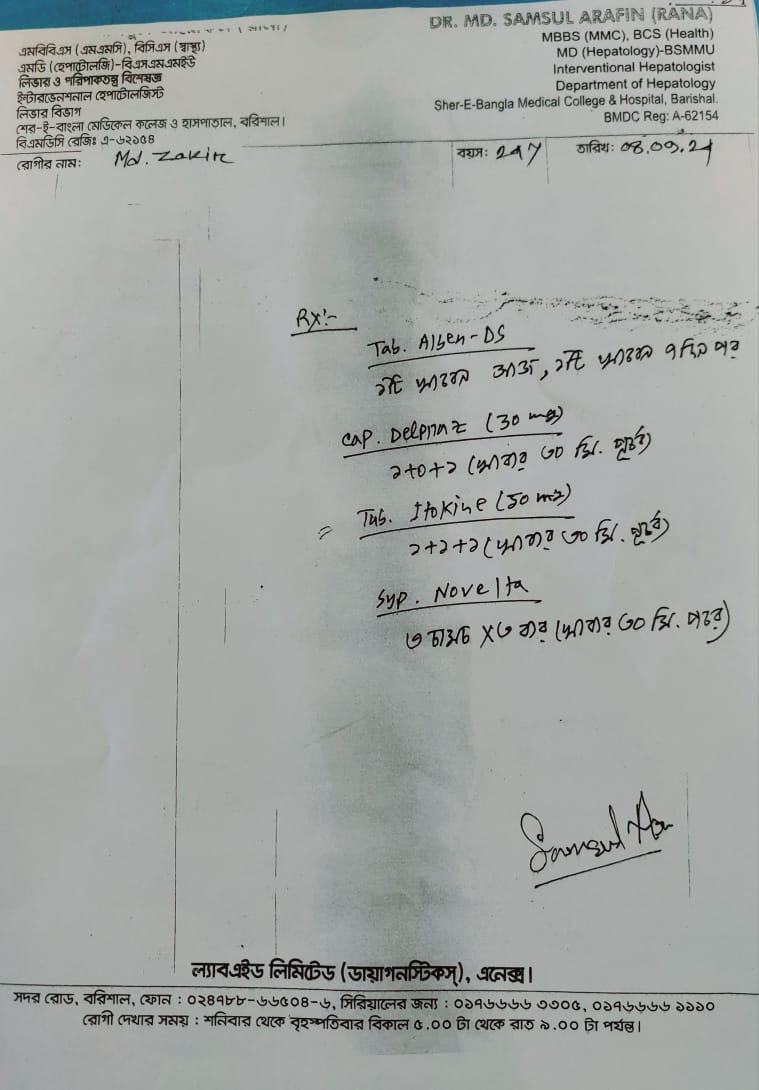 এমবিবিএস (এমএমসি), বিসিএস (স্বাস্থ্য)
এমডি (হেপাটোলজি)-বিএসএমএমইউ
লিভার ও পরিপাকতন্ত্র বিশেষজ্ঞ
ইন্টারভেনশনাল হেপাটোলজিস্ট
লিভার বিভাগ
শের-ই-বাংলা মেডিকেল কলেজ ও হাসপাতাল, বরিশাল।
বিএমডিসি রেজিঃ এ-৬২১৫৪
DR. MD. SAMSUL ARAFIN (RANA)
MBBS (MMC), BCS (Health)
MD (Hepatology)-BSMMU
Interventional Hepatologist
Department of Hepatology
Sher-E-Bangla Medical College & Hospital, Barishal.
BMDC Reg: A-62154
রোগীর নাম: Md. Zakir বয়স: 24y তারিখ: 08.09.24
Rx:-
Tab. Alben-DS
১টি খাবেন আজ, ১টি খাবেন ৭ দিন পর
Cap. (30 mg)
১+০+১ (খাবার ৩০ মি. পূর্বে)
Tab. Itokine (50 mg)
১+১+১ (খাবার ৩০ মি. পূর্বে)
Syp. Novelta
৩ চামচ X ৩ বার (খাবার ৩০ মি. পরে)
Samsul
ল্যাবএইড লিমিটেড (ডায়াগনস্টিকস্), এনেক্স।
সদর রোড, বরিশাল, ফোন : ০২৪৭৮৮-৬৬৫০৪-৬, সিরিয়ালের জন্য : ০১৭৬৬৬৬ ৩৩০৫, ০১৭৬৬৬৬ ১১১০
রোগী দেখার সময় : শনিবার থেকে বৃহস্পতিবার বিকাল ৫.০০ টা থেকে রাত ৯.০০ টা পর্যন্ত।